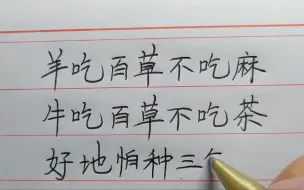 羊吃百草不吃麻
牛吃百草不吃茶
好地怕种三